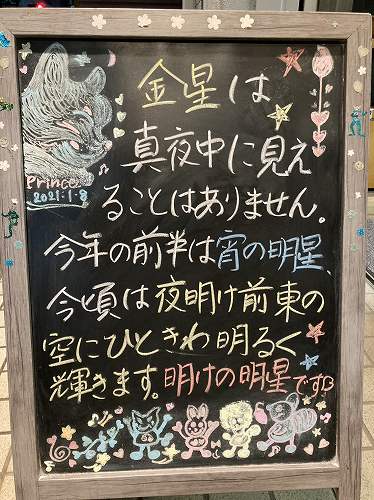 金星は
真夜中に見え
ることはありません。
今年の前半は宵の明星、
今頃は夜明け前東の
空にひときわ明るく
輝きます。明けの明星です
Princess
2021・1・8